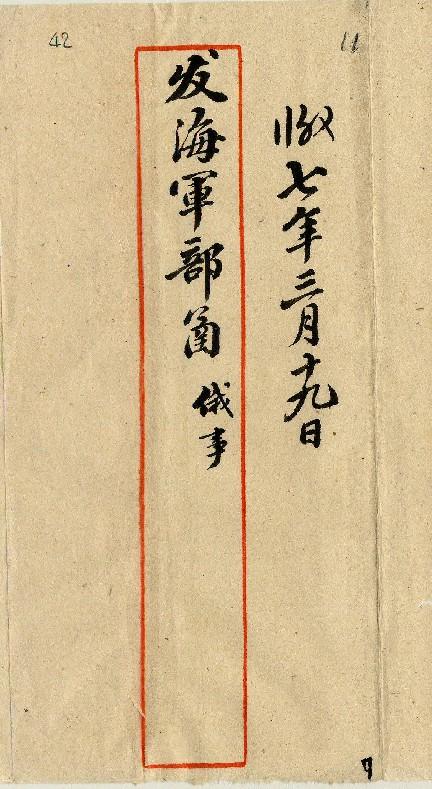 11
收七年三月十九日
发海軍部函 俄事
42